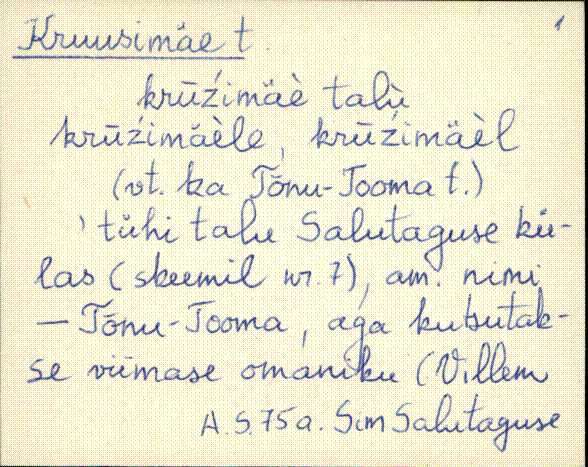 Kruusimäe t. 1
krūźimäè talù,
krūźimäèle, krūźimäèl
(vt. ka Tõnu-Tooma t.)
' tühi talu Salutaguse kü-
las (skeemil nr. 7), am. nimi
— Tõnu-Tooma, aga kutsutak-
se viimase omaniku (Villem
A. S. 75a. Sim Salutaguse